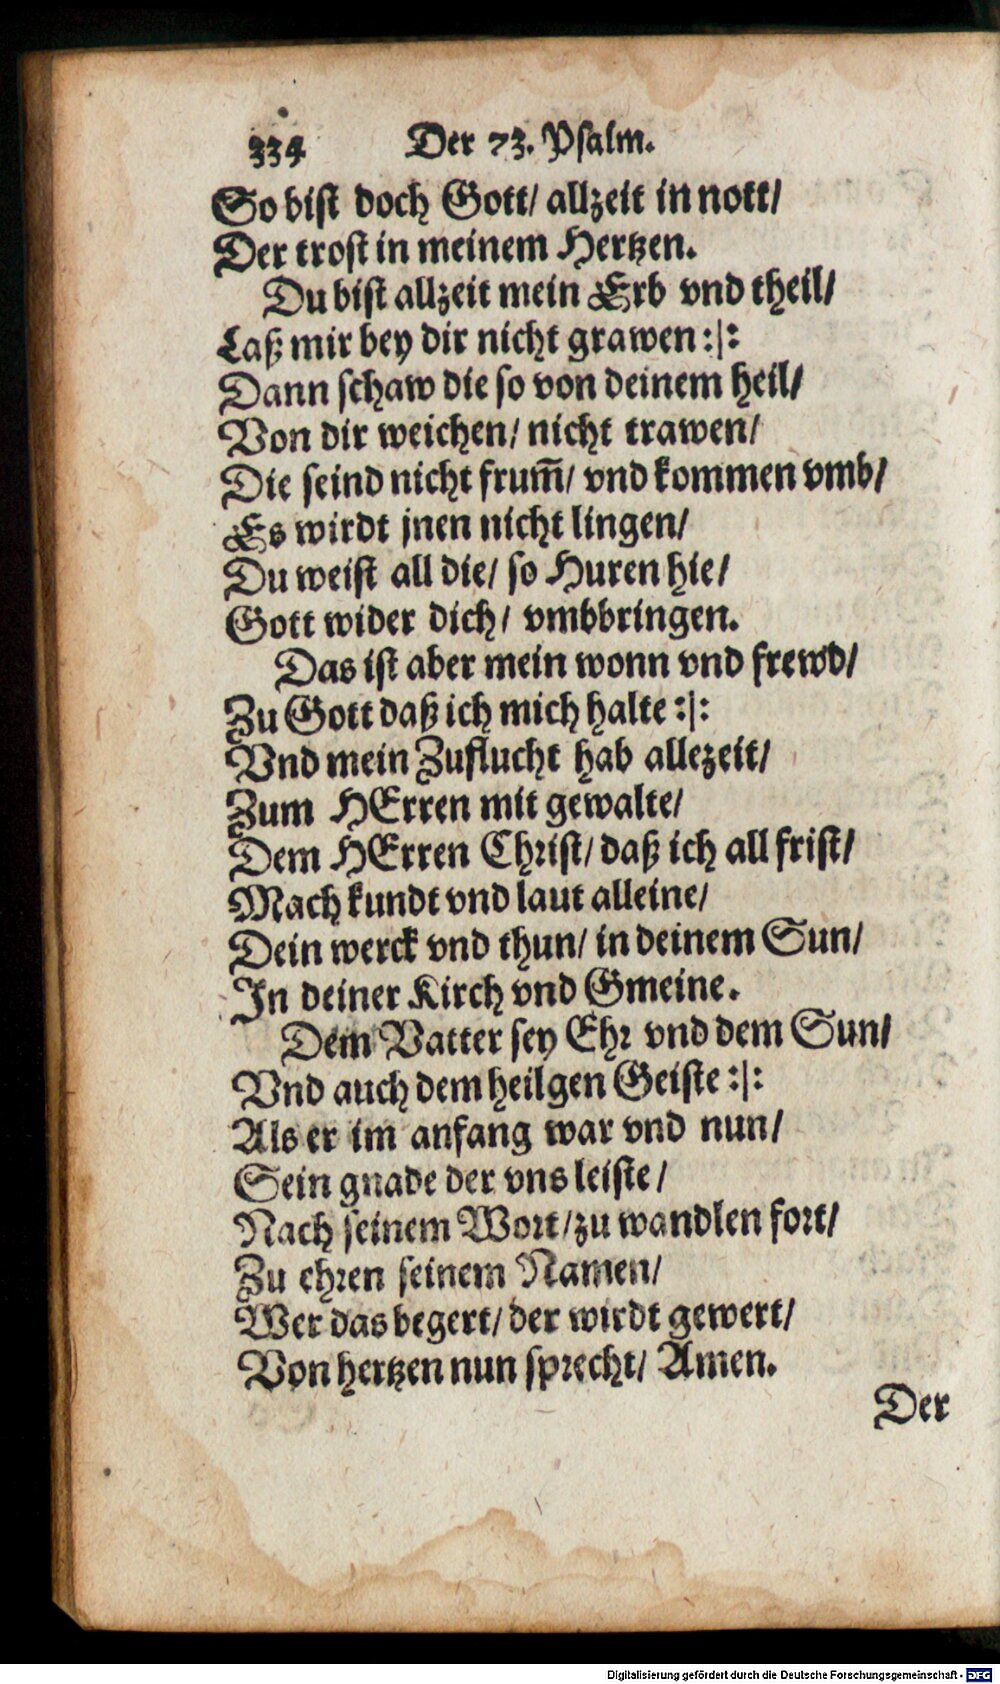 334 Der 73. Psalm.
So bist doch Gott/ allzeit in nott/
Der trost in meinem Hertzen.
Du bist allzeit mein Erb vnd theil/
Laß mir bey dir nicht grawen :|:
Dann schaw die so von deinem heil/
Von dir weichen/ nicht trawen/
Die seind nicht frum̄/ vnd kommen vmb/
Es wirdt jnen nicht lingen/
Du weist all die/ so Huren hie/
Gott wider dich/ vmbbringen.
Das ist aber mein wonn vnd frewd/
Zu Gott daß ich mich halte :|:
Vnd mein Zuflucht hab allezeit/
Zum HErren mit gewalte/
Dem HErren Christ/ daß ich all frist/
Mach kundt vnd laut alleine/
Dein werck vnd thun/ in deinem Sun/
In deiner Kirch vnd Gmeine.
Dem Vatter sey Ehr vnd dem Sun/
Vnd auch dem heilgen Geiste :|:
Als er im anfang war vnd nun/
Sein gnade der vns leiste/
Nach seinem Wort/ zu wandlen fort/
Zu ehren seinem Namen/
Wer das begert/ der wirdt gewert/
Von hertzen nun sprecht/ Amen.
Der
Digitalisierung gefördert durch die Deutsche Forschungsgemeinschaft - DFG